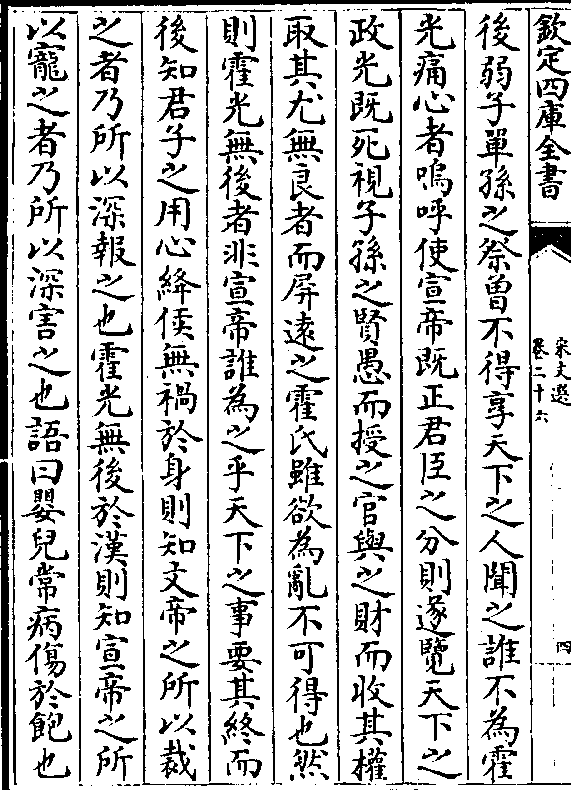 欽定四庫全書
宋文選
卷二十六
四
後弱子單孫之祭曾不得享天下之人聞之誰不為霍
光痛心者嗚呼使宣帝既正君臣之分則遂覽天下之
政光既死視子孫之賢愚而授之官與之財而收其權
取其尤無良者而屏遠之霍氏雖欲為亂不可得也然
則霍光無後者非宣帝誰為之乎天下之事要其終而
後知君子之用心絳侯無禍於身則知文帝之所以裁
之者乃所以深報之也霍光無後於漢則知宣帝之所
以寵之者乃所以深害之也語曰嬰兒常病傷於飽也